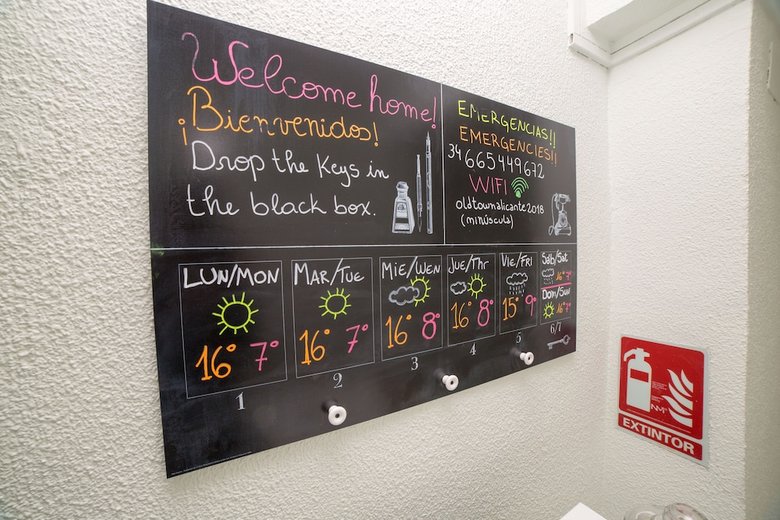 Welcome home!
¡Bienvenidos!
Drop the keys in
the black box.
EMERGENCIAS!!
EMERGENCIES!!
34 665449672
WIFI
oldtownalicante2018
(minúscula)
LUN/MON
16° 7°
1
MAR/TUE
16° 7°
2
MIE/WEN
16° 8°
3
JUE/THR
16° 8°
4
VIE/FRI
15° 9°
5
SÁB/SAT
16° 7°
DOM/SUN
16° 7°
6/7
EXTINTOR